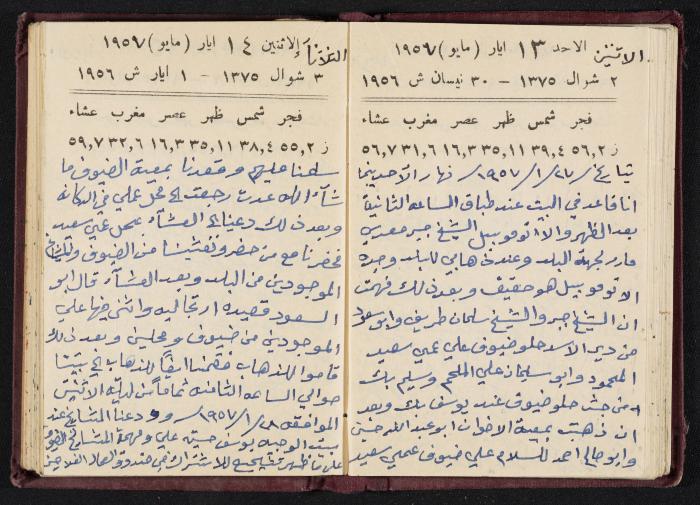 الاثنين الاحد ١٣ ايار (مايو) ١٩٥٦
٢ شوال ١٣٧٥ – ٣٠ نيسان ش ١٩٥٦
فجر شمس ظهر عصر مغرب عشاء
بتاريخ ٢٧/١/١٩٥٧ نهار الاحد بينما
انا قاعد في البيت عند طباق الساعه الثانية
بعد الظهر والا توموبيل الشيخ جبر معديه
مارر لجهة البلد وعند ذهابي للبلد وجدت
الاتوموبيل هو حقيقة وبعد ذلك فهمت
ان الشيخ جبر والشيخ سلمان طريف وابو سعود
من دير الاسد حلو ضيوف علي عمي سعيد
المحمود وابو سلمان علي الملحم وسليم بك
من حلو ضيوف عند يوسف بك وبعد
ان ذهبت بمعية الاخوان ابو عبدالله حسن
وابو صالح احمد للسلام علي ضيوف عمي سعيد
الثلاثاء الاثنين ١٤ ايار (مايو) ١٩٥٦
٣ شوال ١٣٧٥ – ١ ايار ش ١٩٥٦
فجر شمس ظهر عصر مغرب عشاء
سلمنا عليهم وقعدنا بمعية الضيوف ما
شاء الله عدت رجعت الى محل عملي في الدكانه
وبعد ذلك دعينا الى العشاء بمحل عمي سعيد
فحضرنا مع من حضر وتعشينا من الضيوف والمشايخ
الموجودين من البلد وبعد العشاء قال ابو
السعود قصيده ارتجاليه واثنى فيها علي
الموجودين من ضيوف ومحليين وبعد ذلك
قاموا للذهاب فقمنا ايضا للذهاب الى بيتنا
حوالي الساعه الثامنه تماماً من ليلة الاثنين
الموافقه ٢٨/١/١٩٥٧ وودعنا المشايخ عند
بيت الوجيه يوسف حسين علي ومهمة المشايخ